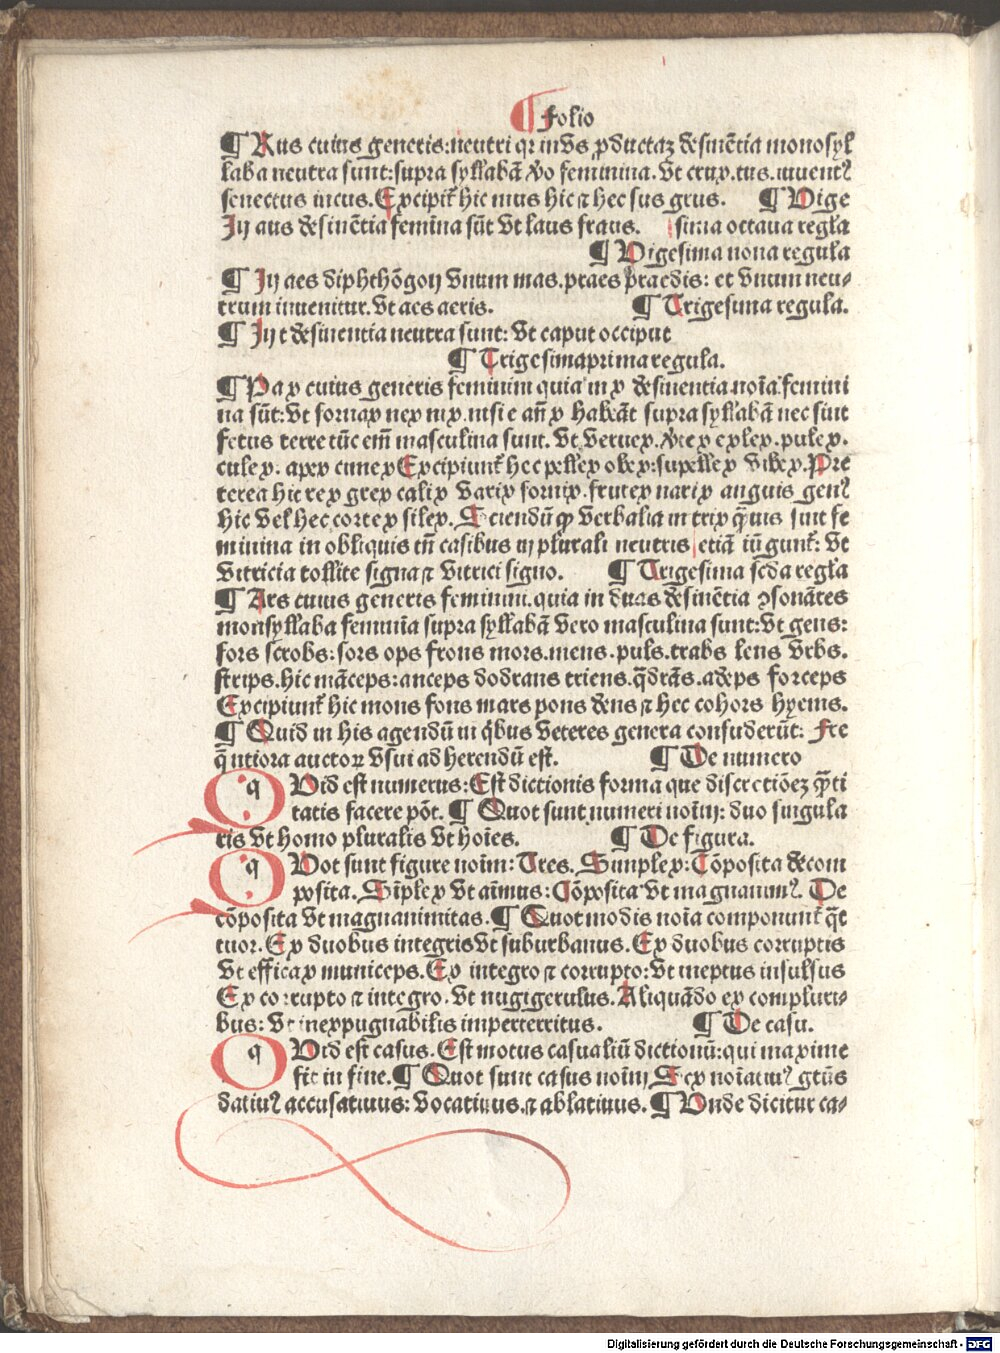 ¶ folio
¶ Rus cuius generis: neutri qꝛ in vs ꝓductaꝫ desinẽtia monosyl
laba neutra sunt: supra syllabã ꝟo feminina. Vt crux. tus. iuuentꝰ
senectus incus. Excipit̃ hic mus hic ⁊ hec sus grus. ¶ Vige
In aus desinẽtia femina sũt Vt laus fraus. sima octaua regl̃a
¶ Vigesima nona regula
¶ In aes diphthõgon vnum mas. praes praedis: et vnum neu-
trum inuenitur. Vt aes aeris. ¶ Trigesima regula.
¶ In t desinentia neutra sunt: Vt caput occiput
¶ Trigesimaprima regula.
¶ Pax cuius generis feminini quia in x desinentia noĩa femini
na sũt: Vt fornax nex nix. nisi e añ x habeãt supra syllabã nec sint
fetus terre tũc em̃ masculina sunt. Vt Veruex. exlex. pulex.
culex. apex cimex Excipiunt̃ hec pellex obex: supellex vibex. Pre
terea hic rex grex calix varix fornix. frutex narix anguis genꝰ
hic vel hec cortex silex. Sciendũ ꝙ verbalia in trix q̃uis sint fe
minina in obliquis tñ casibus in plurali neutris etiã iũgunt̃: Vt
Vitricia tollite signa ⁊ vitrici signo. ¶ Trigesima scda regl̃a
¶ Ars cuius generis feminini. quia in duas desinẽtia ꝯsonãtes
monsyllaba feminĩa supra syllabã vero masculina sunt: Vt gens:
fors scrobs: sors ops frons mors. mens. puls. trabs lens vrbs.
stirps. hic mãceps: anceps dodrans triens. q̃drãs. adeps forceps
Excipiunt̃ hic mons fons mars pons dens ⁊ hec cohors hyems.
¶ Quid in his agendũ in q̃bus veteres genera confuderũt: Fre
q̃ntiora auctoꝝ vsui adherendũ est. ¶ De numero
q Vid est numerus: Est dictionis forma que discretiõeꝫ q̃ti
tatis facere põt. ¶ Quot sunt numeri noĩm: duo singula
ris Vt homo pluralis Vt hoĩes. ¶ De figura.
q Vot sunt figure noĩm: Tres. Simplex: Cõposita decom
posita. Sĩplex Vt aĩmus: Cõposita Vt magnanimꝰ. De
cõposita Vt magnanimitas. ¶ Quot modis noĩa componunt̃ q̃t
tuor. Ex duobus integris Vt suburbanus. Ex duobus corruptis
Vt efficax municeps. Ex integro ⁊ corrupto: Vt ineptus insulsus
Ex corrupto ⁊ integro. Vt nugigerulus. Aliquãdo ex compluri-
bus: Vt inexpugnabilis imperterritus. ¶ De casu.
q Vid est casus. Est motus casualiũ dictionũ: qui maxime
fit in fine. ¶ Quot sunt casus noĩm Sex noĩatiuꝰ gtũs
datiuꝰ accusatiuus: Vocatiuus. ⁊ ablatiuus. ¶ Vnde dicitur ca-
Digitalisierung gefördert durch die Deutsche Forschungsgemeinschaft - DFG